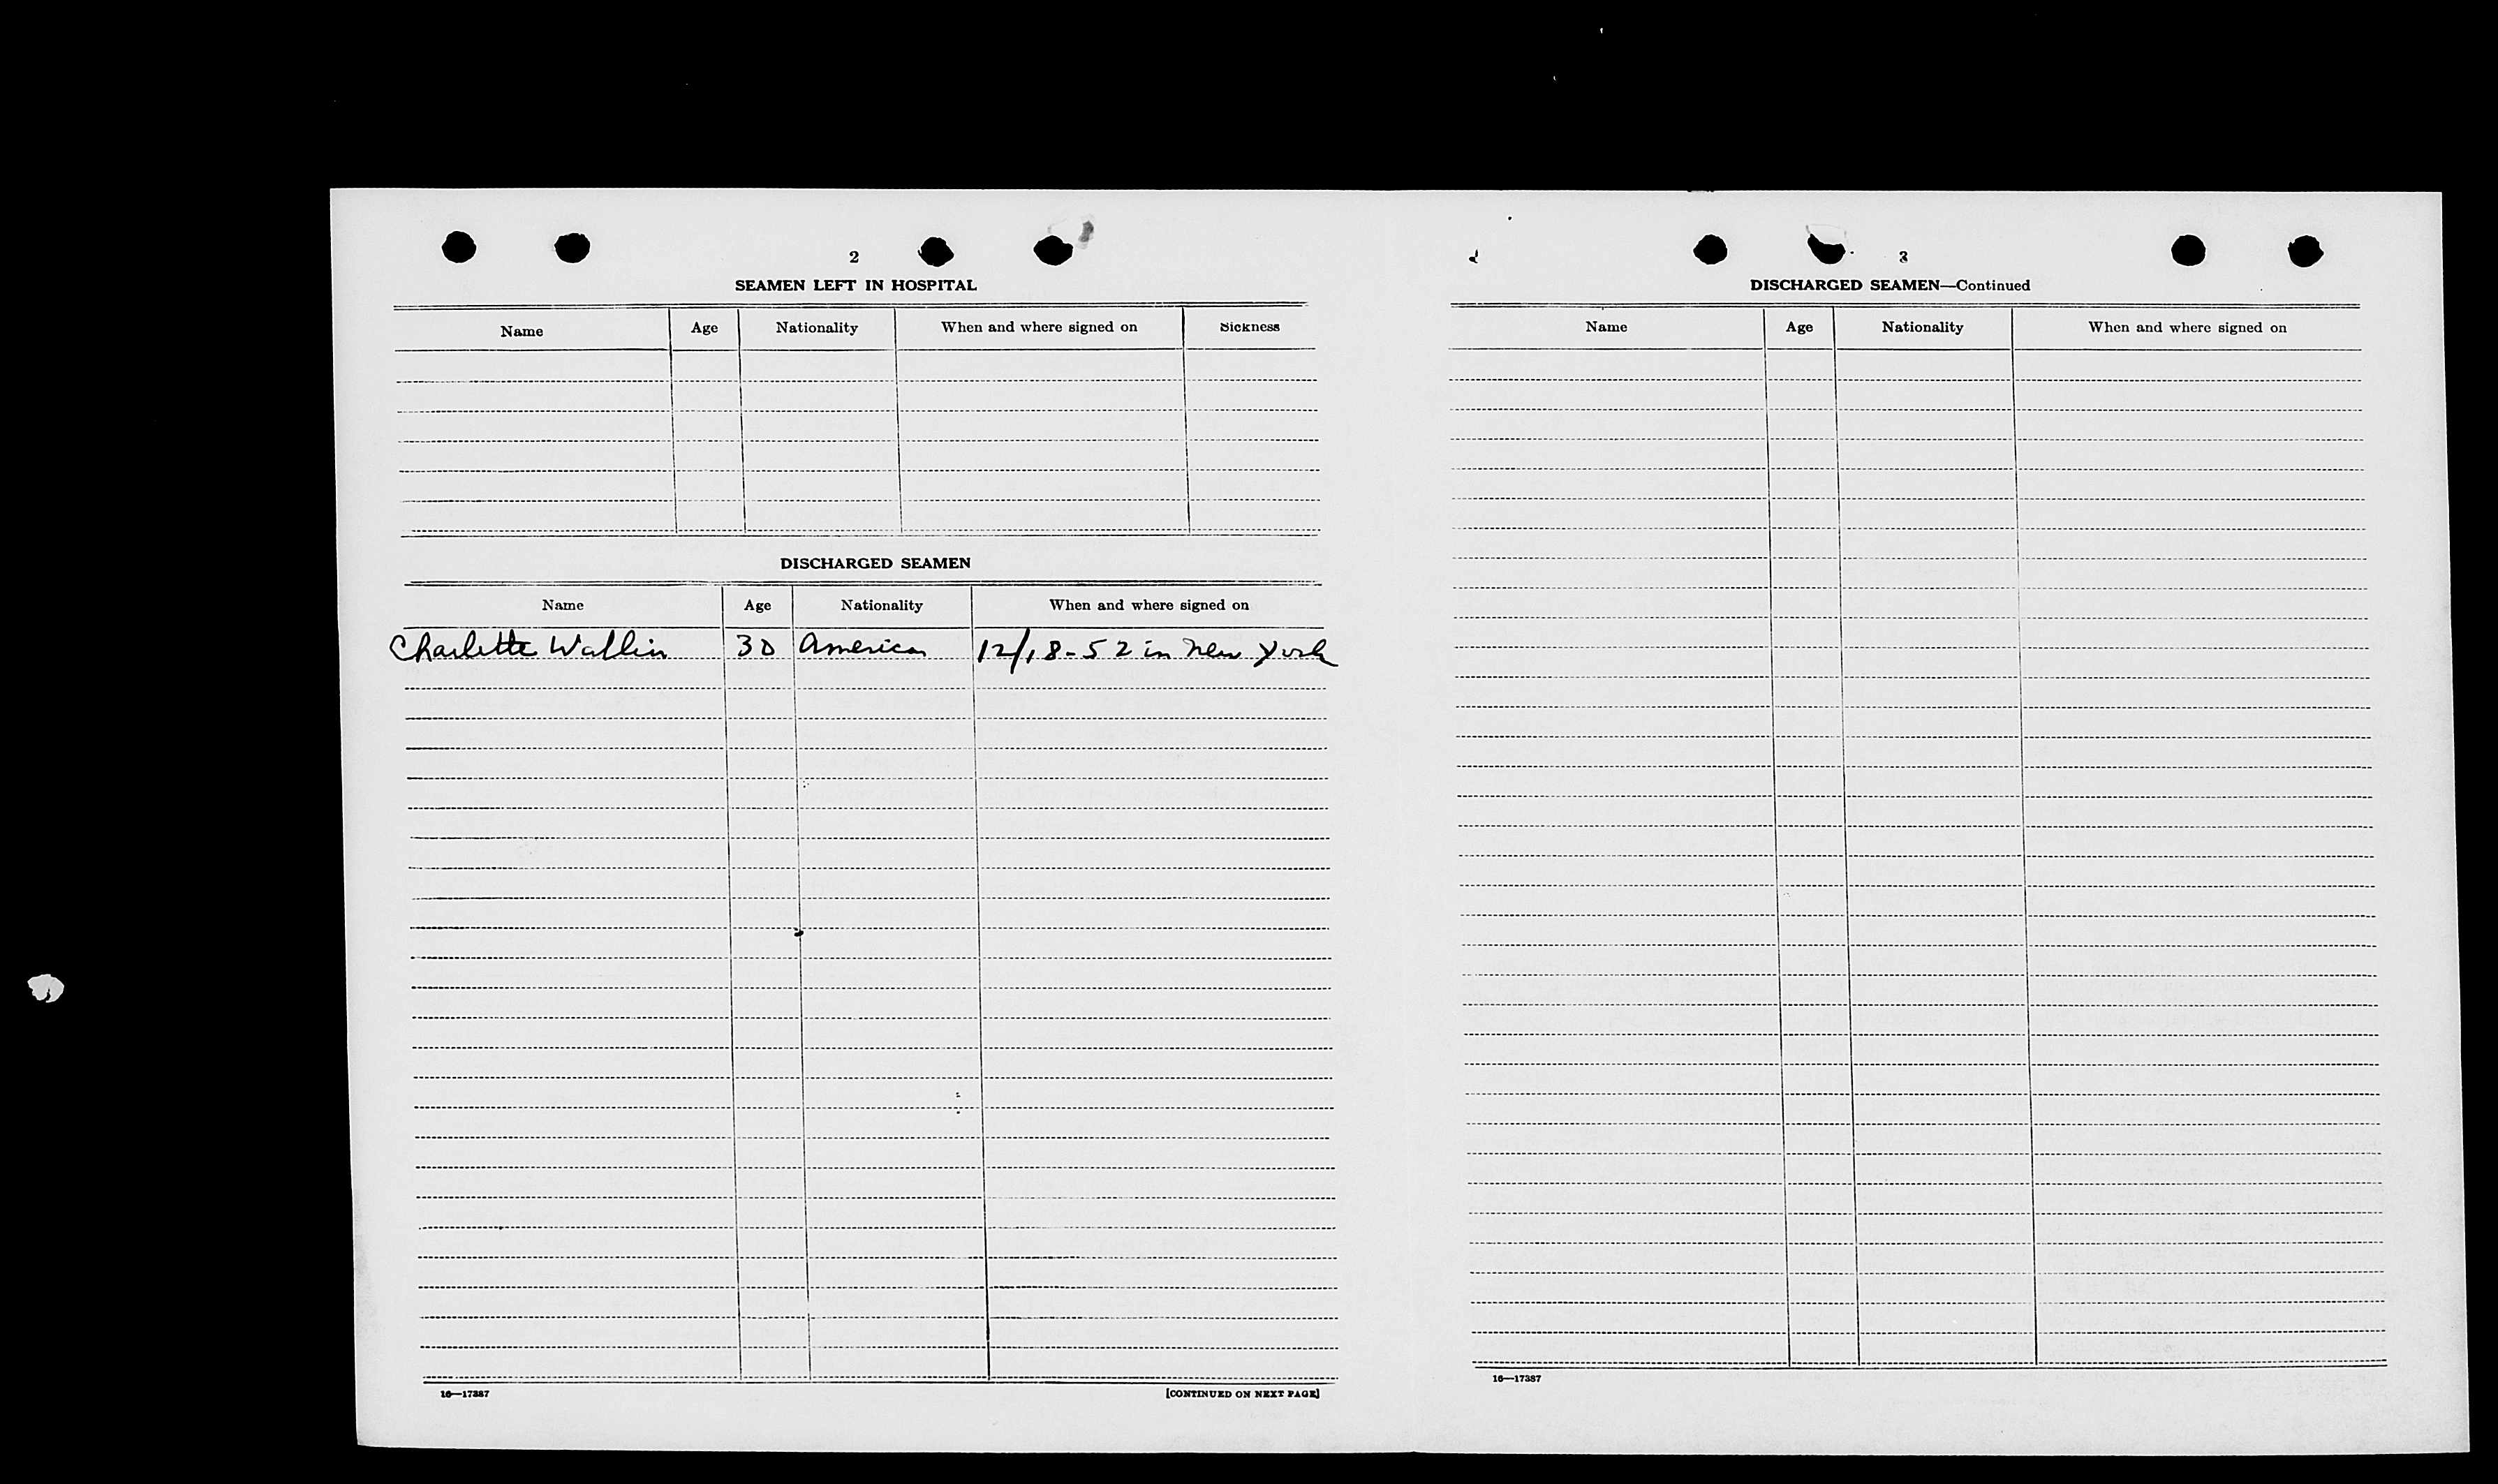 2
SEAMEN LEFT IN HOSPITAL
Name Age Nationality When and where signed on Sickness
DISCHARGED SEAMEN
Name Age Nationality When and where signed on
Charlette Wallin 30 American 12/18-52 in New York
16—17387
[CONTINUED ON NEXT PAGE]
3
DISCHARGED SEAMEN—Continued
Name Age Nationality When and where signed on
16—17387